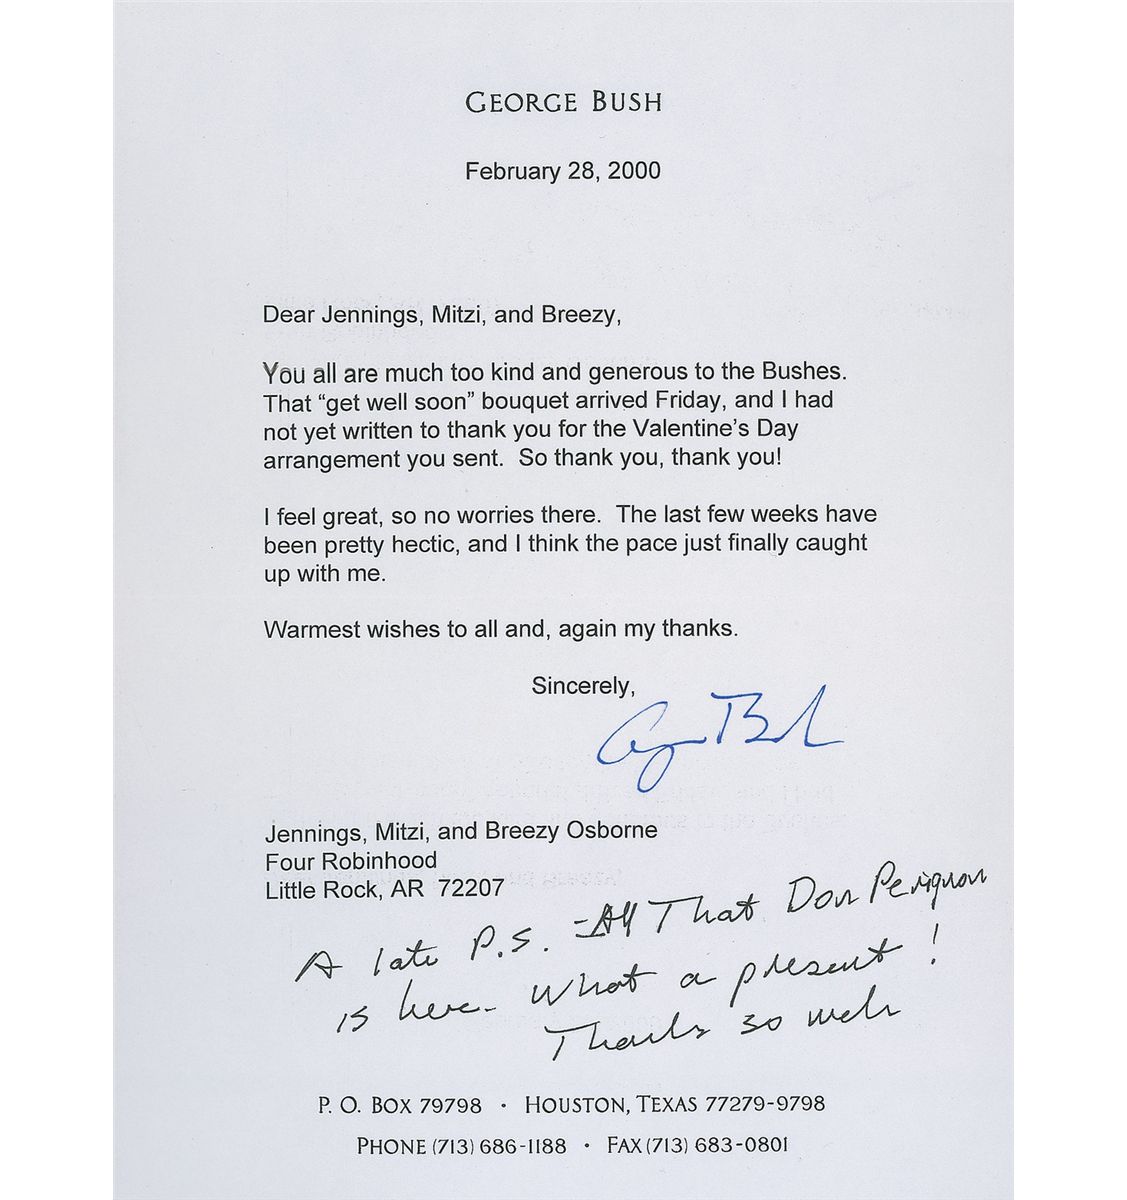 GEORGE BUSH
February 28, 2000
Dear Jennings, Mitzi, and Breezy,
You all are much too kind and generous to the Bushes.
That “get well soon” bouquet arrived Friday, and I had
not yet written to thank you for the Valentine’s Day
arrangement you sent.  So thank you, thank you!
I feel great, so no worries there.  The last few weeks have
been pretty hectic, and I think the pace just finally caught
up with me.
Warmest wishes to all and, again my thanks.
Sincerely,
G Bush
Jennings, Mitzi, and Breezy Osborne
Four Robinhood
Little Rock, AR  72207
A late P.S. - All That Don Perignon
is here - What a present !
Thanks so much
P. O. BOX 79798 · HOUSTON, TEXAS 77279-9798
PHONE (713) 686-1188 · FAX (713) 683-0801